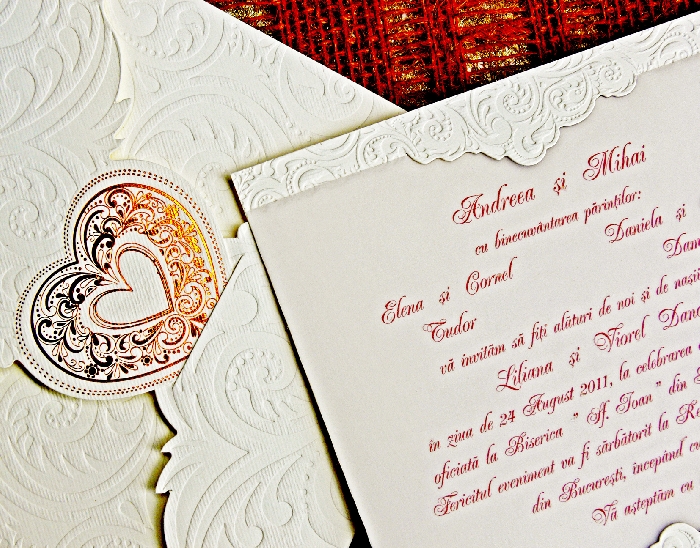 Andreea și Mihai
cu binecuvântarea părinților:
Elena și Cornel Daniela și
Tudor Dan
vă invităm să fiți alături de noi și de nașii
Liliana și Viorel Dan
în ziua de 24 August 2011, la celebrarea
oficiată la Biserica " Sf. Ioan " din
Fericitul eveniment va fi sărbătorit la Re
din București, începând cu
Vă așteptăm cu